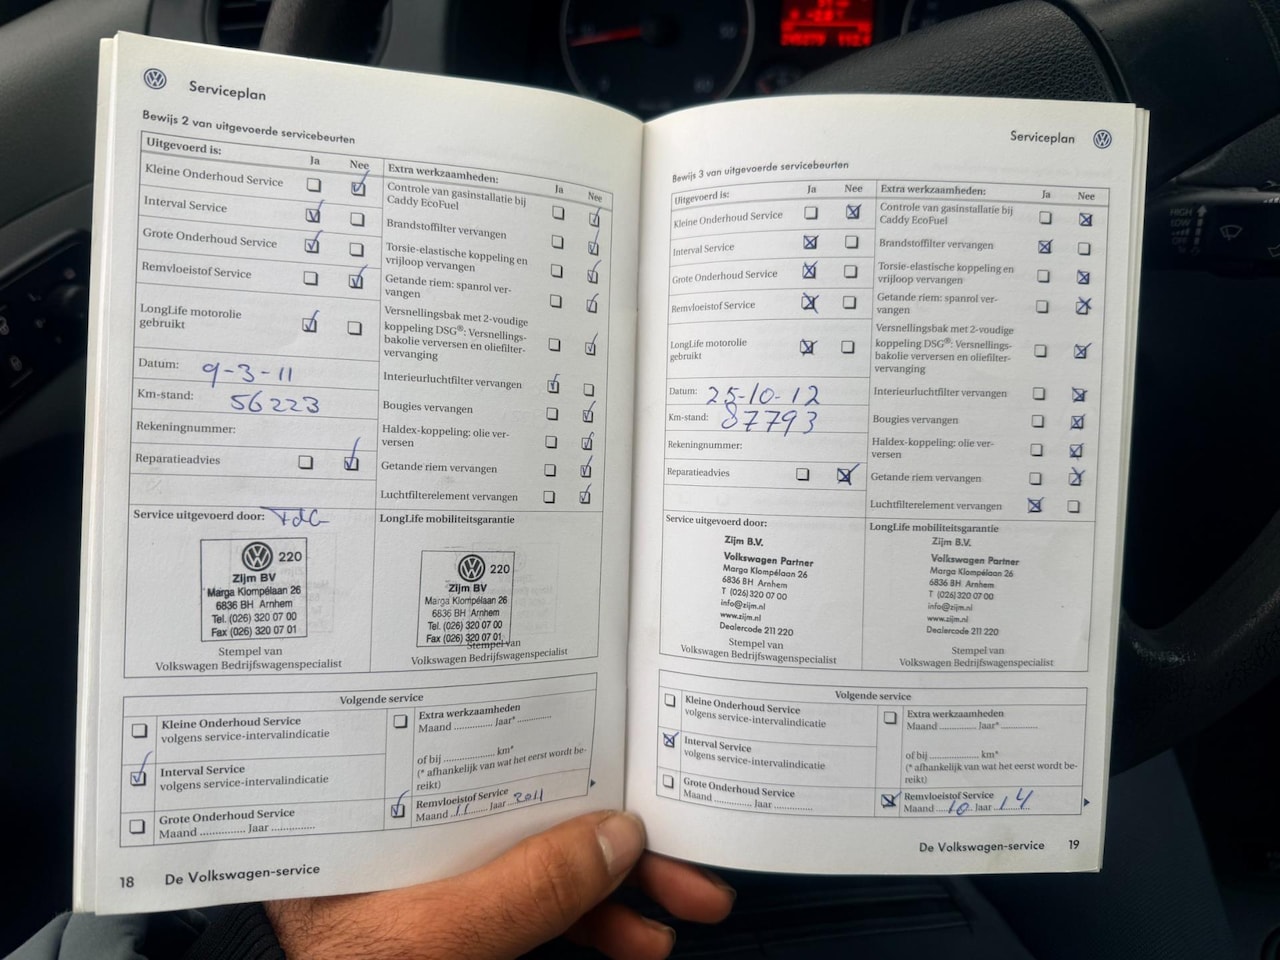 Serviceplan
Bewijs 2 van uitgevoerde servicebeurten
Uitgevoerd is: Ja Nee
Kleine Onderhoud Service
Interval Service
Grote Onderhoud Service
Remvloeistof Service
LongLife motorolie
gebruikt
Datum: 9-3-11
Km-stand: 56223
Rekeningnummer:
Reparatieadvies
Extra werkzaamheden: Ja Nee
Controle van gasinstallatie bij
Caddy EcoFuel
Brandstoffilter vervangen
Torsie-elastische koppeling en
vrijloop vervangen
Getande riem: spanrol ver-
vangen
Versnellingsbak met 2-voudige
koppeling DSG®: Versnellings-
bakolie verversen en oliefilter-
vervanging
Interieurluchtfilter vervangen
Bougies vervangen
Haldex-koppeling: olie ver-
versen
Getande riem vervangen
Luchtfilterelement vervangen
Service uitgevoerd door:
220
Zijm BV
Marga Klompélaan 26
6836 BH Arnhem
Tel. (026) 320 07 00
Fax (026) 320 07 01
Stempel van
Volkswagen Bedrijfswagenspecialist
LongLife mobiliteitsgarantie
220
Zijm BV
Marga Klompélaan 26
6836 BH Arnhem
Tel. (026) 320 07 00
Fax (026) 320 07 01
Stempel van
Volkswagen Bedrijfswagenspecialist
Volgende service
Kleine Onderhoud Service
volgens service-intervalindicatie
Interval Service
volgens service-intervalindicatie
Grote Onderhoud Service
Maand ............... Jaar ...............
Extra werkzaamheden
Maand ............... Jaar* ...............
of bij .................... km*
(* afhankelijk van wat het eerst wordt be-
reikt)
Remvloeistof Service
Maand 11 Jaar 2011
18 De Volkswagen-service
Serviceplan
Bewijs 3 van uitgevoerde servicebeurten
Uitgevoerd is: Ja Nee
Kleine Onderhoud Service
Interval Service
Grote Onderhoud Service
Remvloeistof Service
LongLife motorolie
gebruikt
Datum: 25-10-12
Km-stand: 87793
Rekeningnummer:
Reparatieadvies
Extra werkzaamheden: Ja Nee
Controle van gasinstallatie bij
Caddy EcoFuel
Brandstoffilter vervangen
Torsie-elastische koppeling en
vrijloop vervangen
Getande riem: spanrol ver-
vangen
Versnellingsbak met 2-voudige
koppeling DSG®: Versnellings-
bakolie verversen en oliefilter-
vervanging
Interieurluchtfilter vervangen
Bougies vervangen
Haldex-koppeling: olie ver-
versen
Getande riem vervangen
Luchtfilterelement vervangen
Service uitgevoerd door:
Zijm B.V.
Volkswagen Partner
Marga Klompélaan 26
6836 BH Arnhem
T (026) 320 07 00
info@zijm.nl
www.zijm.nl
Dealercode 211 220
Stempel van
Volkswagen Bedrijfswagenspecialist
LongLife mobiliteitsgarantie
Zijm B.V.
Volkswagen Partner
Marga Klompélaan 26
6836 BH Arnhem
T (026) 320 07 00
info@zijm.nl
www.zijm.nl
Dealercode 211 220
Stempel van
Volkswagen Bedrijfswagenspecialist
Volgende service
Kleine Onderhoud Service
volgens service-intervalindicatie
Interval Service
volgens service-intervalindicatie
Grote Onderhoud Service
Maand ............... Jaar ...............
Extra werkzaamheden
Maand ............... Jaar* ...............
of bij .................... km*
(* afhankelijk van wat het eerst wordt be-
reikt)
Remvloeistof Service
Maand 10 Jaar 14
De Volkswagen-service 19
HIGH
LOW
OFF